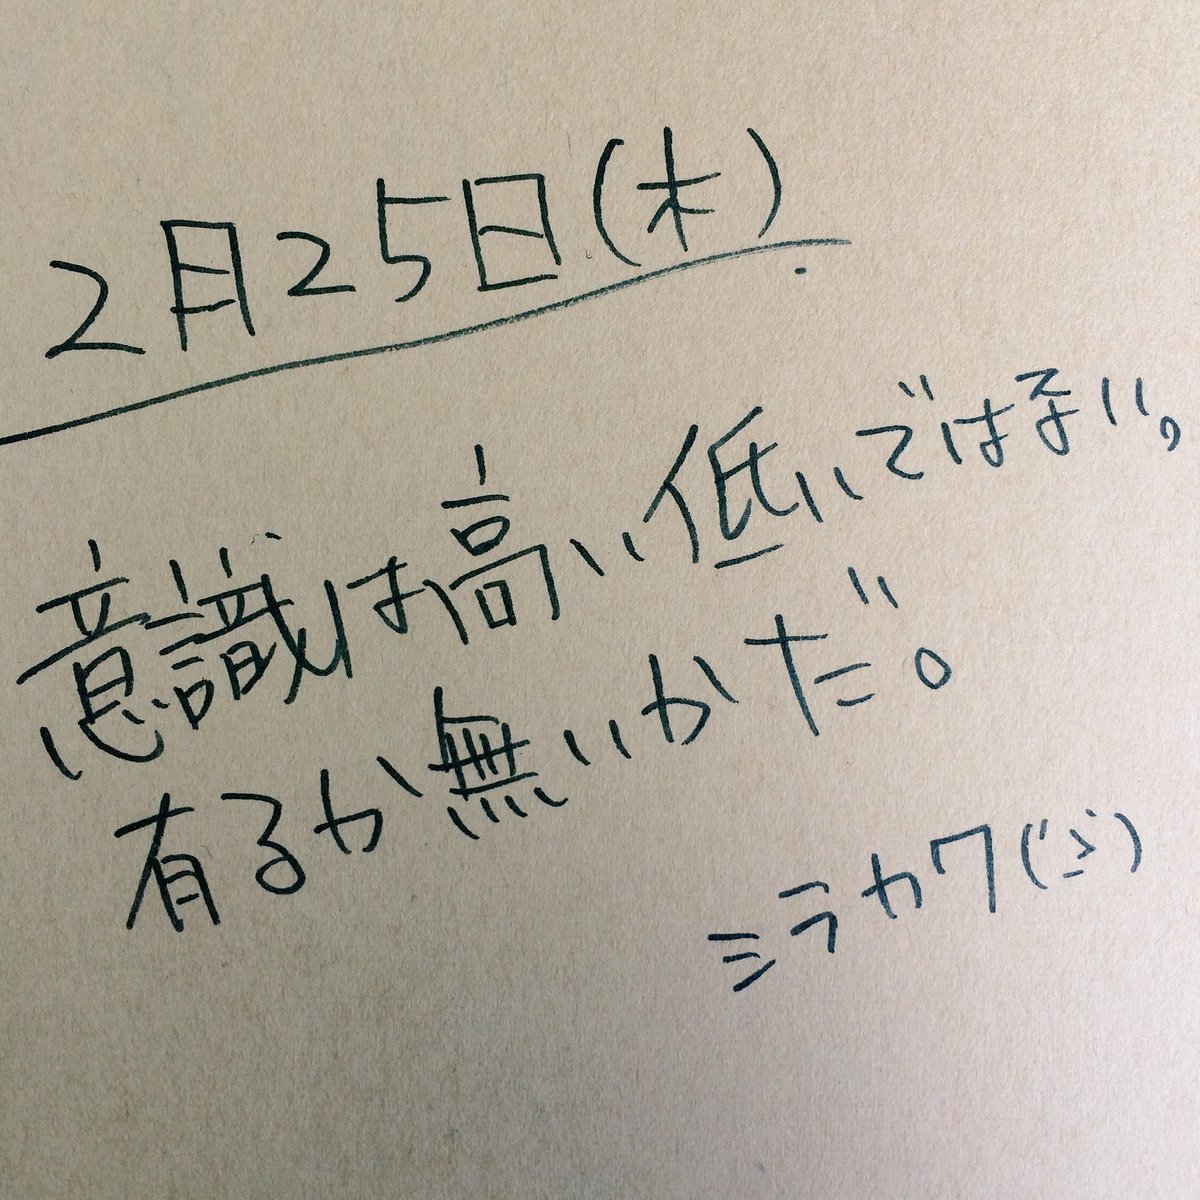 2月25日(木).
意識は高い低いではない。
有るか無いかだ。
シラカワ